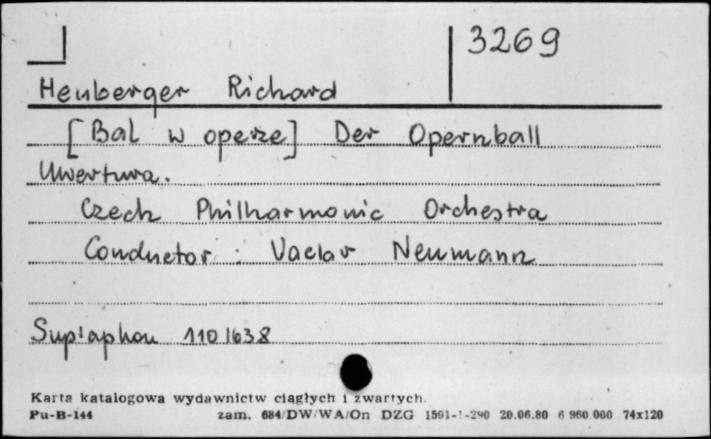 3269
Heuberger Richard
[Bal w operze] Der Opernball
Uwertura.
Czech Philharmonic Orchestra
Conductor : Vaclav Neumann
Supraphon 110 1638
Karta katalogowa wydawnictw ciągłych i zwartych.
Pu-B-144 zam. 684/DW/WA/On DZG 1591-1-290 20.06.80 6 960 000 74x120